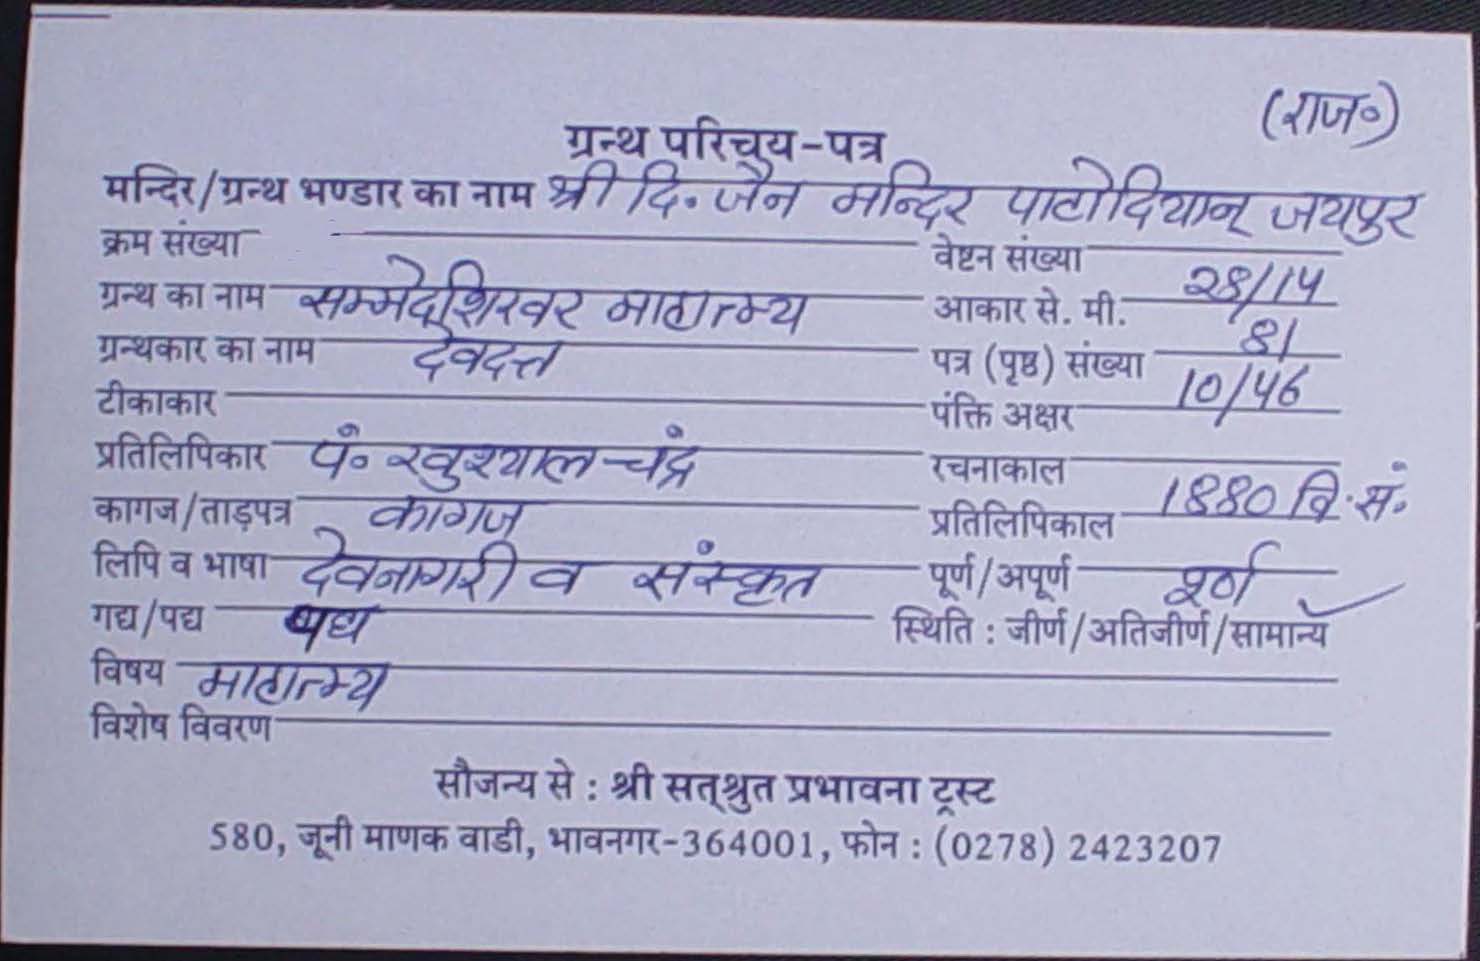 (राज०)
ग्रन्थ परिचय-पत्र
मन्दिर/ग्रन्थ भण्डार का नाम श्री दि. जैन मन्दिर पाटोदियान् जयपुर
क्रम संख्या वेष्टन संख्या
ग्रन्थ का नाम सम्मेदशिखर माहात्म्य आकार से. मी. 28/14
ग्रन्थकार का नाम देवदत्त पत्र (पृष्ठ) संख्या 81
टीकाकार पंक्ति अक्षर 10/46
प्रतिलिपिकार पं० खुश्याल चंद्र रचनाकाल
कागज/ताड़पत्र कागज प्रतिलिपिकाल 1880 वि. सं.
लिपि व भाषा देवनागरी व संस्कृत पूर्ण/अपूर्ण पूर्ण
गद्य/पद्य पद्य स्थिति : जीर्ण/अतिजीर्ण/सामान्य ✓
विषय माहात्म्य
विशेष विवरण
सौजन्य से : श्री सत्श्रुत प्रभावना ट्रस्ट
580, जूनी माणक वाडी, भावनगर-364001, फोन : (0278) 2423207